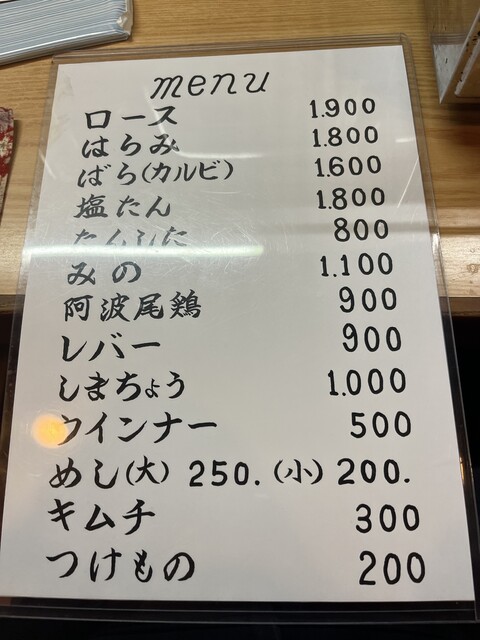 menu
ロース 1.900
はらみ 1.800
ばら(カルビ) 1.600
塩たん 1.800
たんした 800
みの 1.100
阿波尾鶏 900
レバー 900
しまちょう 1.000
ウインナー 500
めし(大) 250. (小) 200.
キムチ 300
つけもの 200